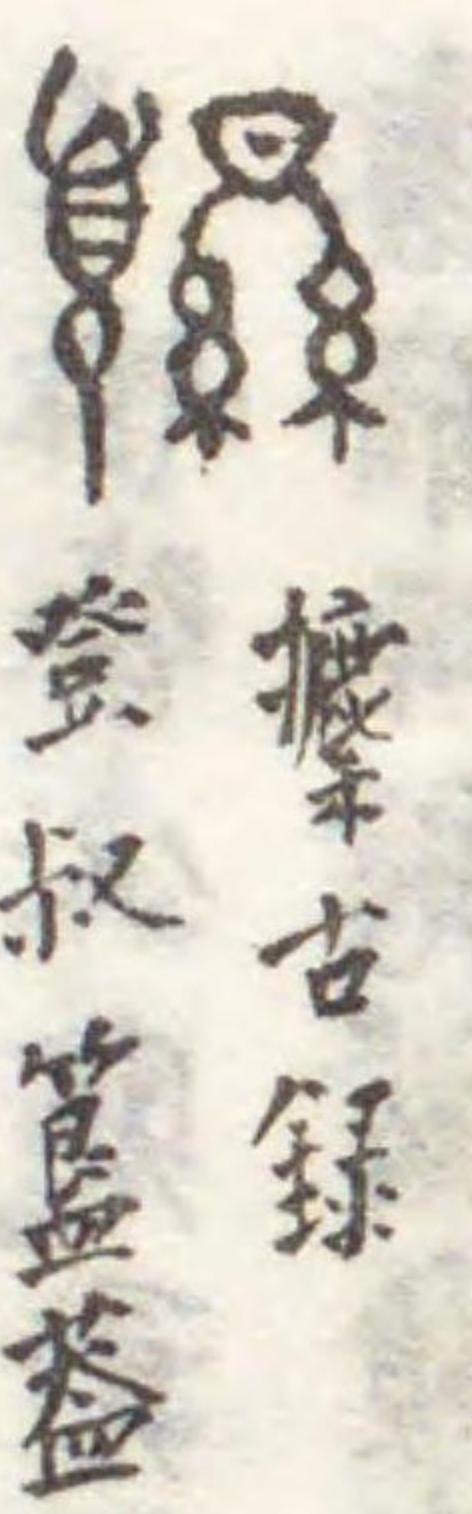 攈古録
登叔簋葢